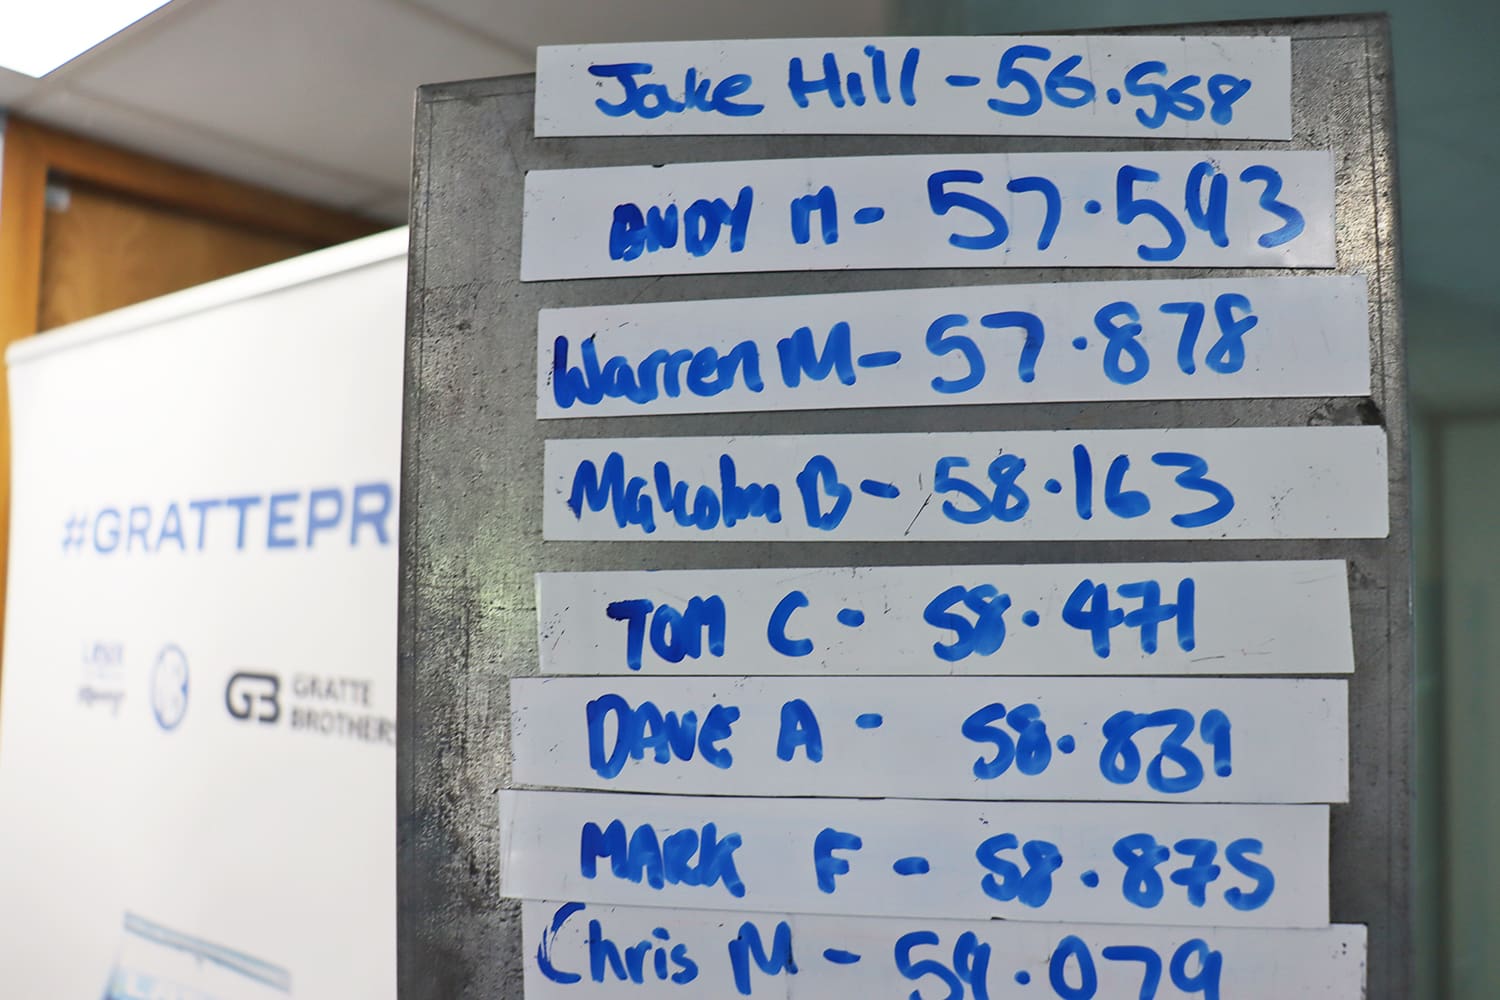 Jake Hill - 56.568
ANDY M - 57.593
Warren M - 57.878
Malcolm B - 58.163
TOM C - 58.471
DAVE A - 58.839
MARK F - 58.875
Chris M - 59.079
#GRATTEPR
GB GRATTE
BROTHERS